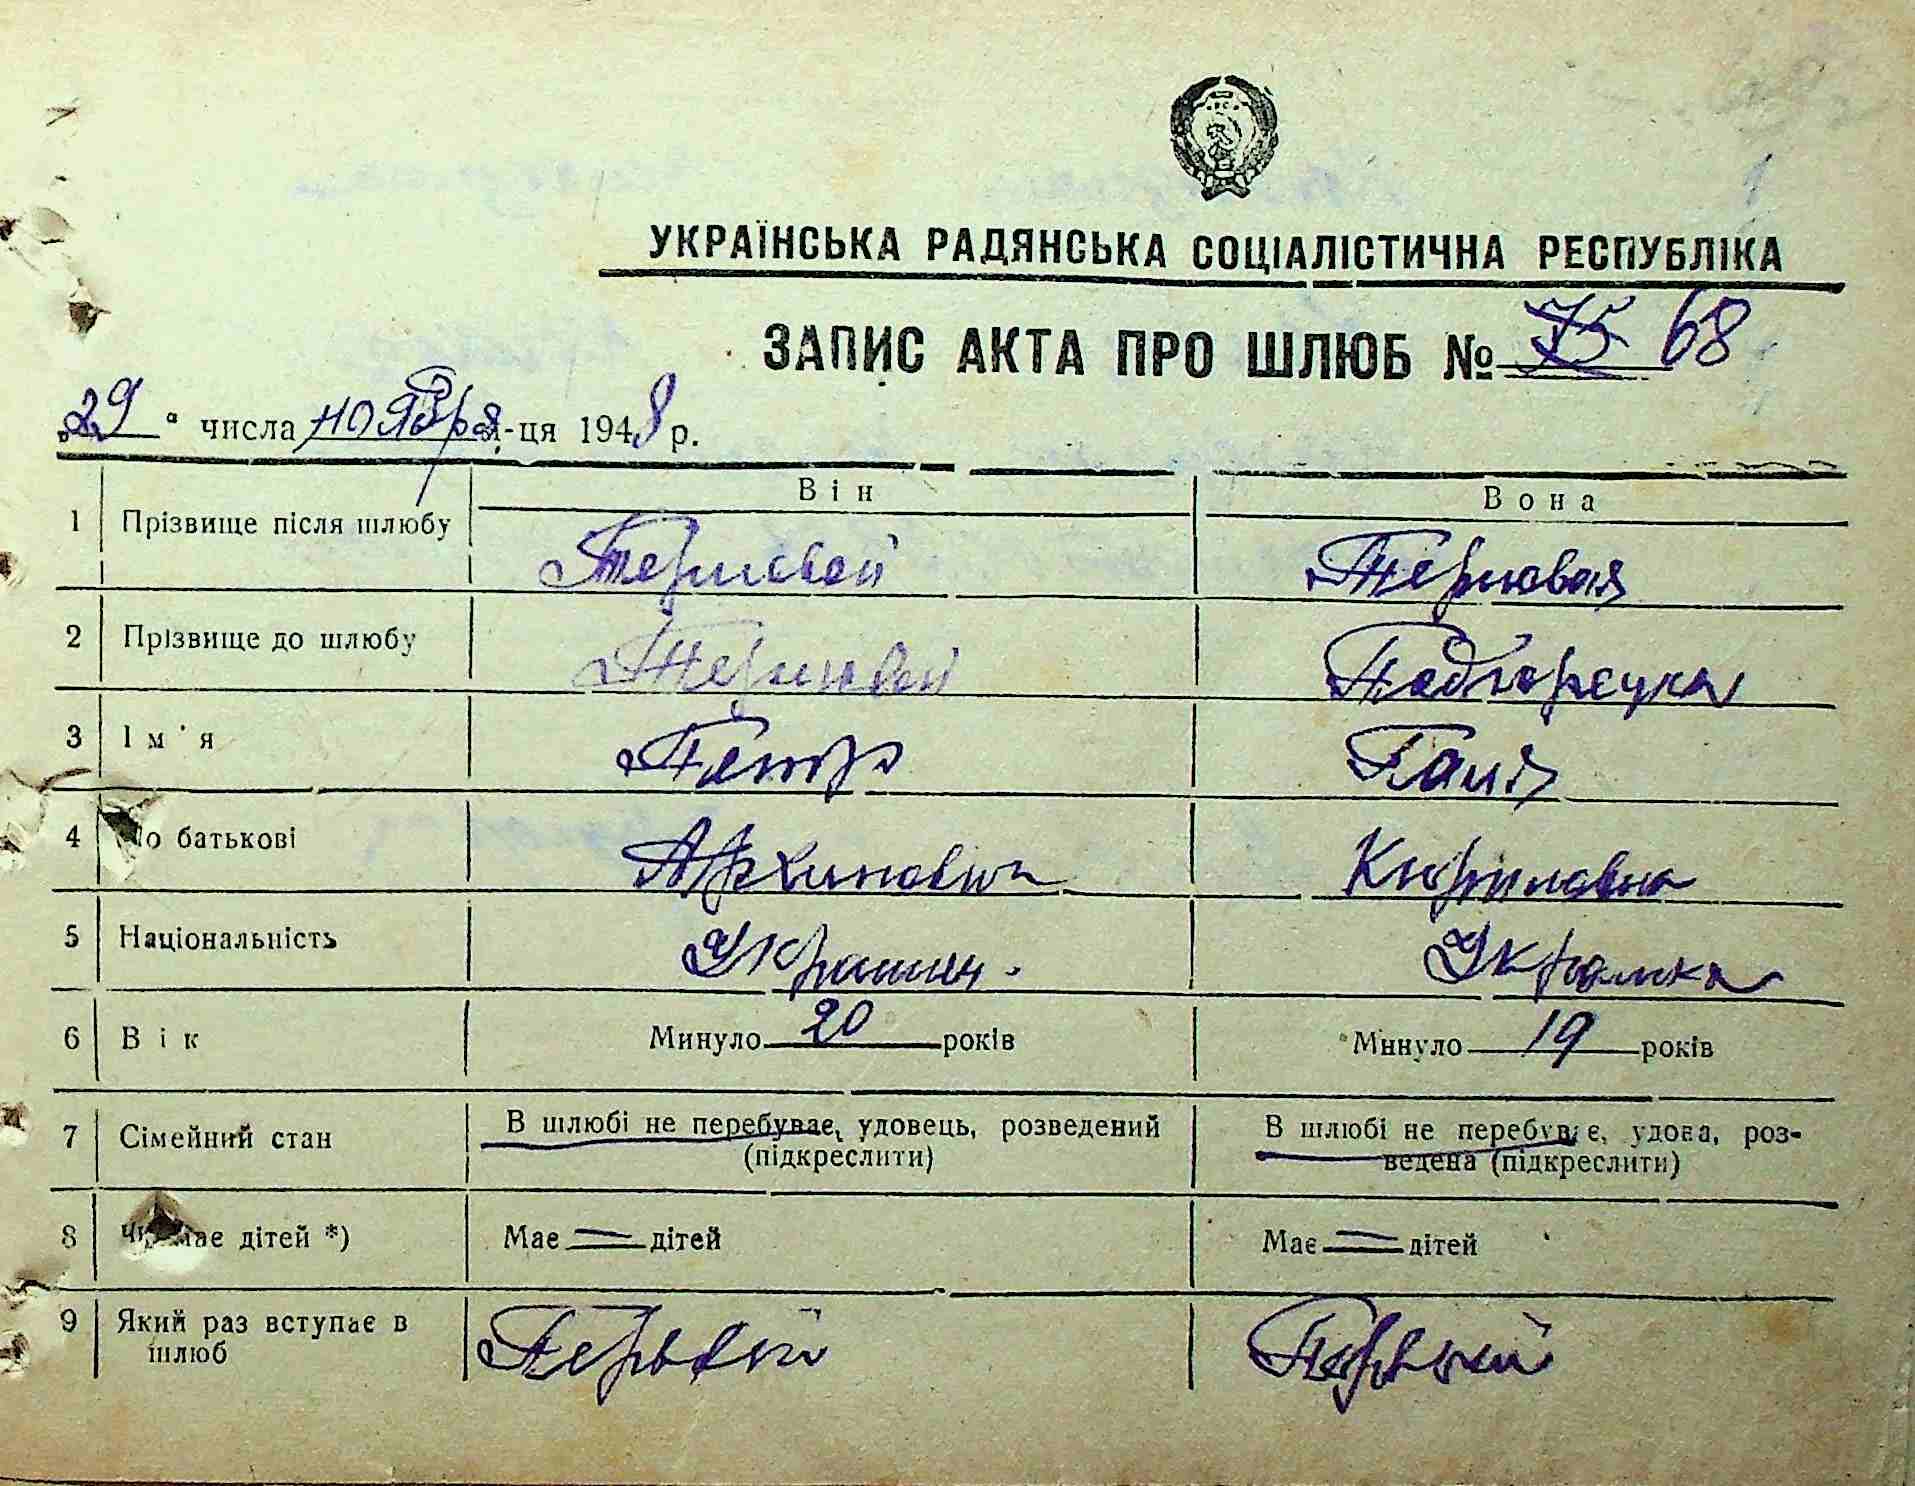 УКРАЇНСЬКА РАДЯНСЬКА СОЦІАЛІСТИЧНА РЕСПУБЛІКА
ЗАПИС АКТА ПРО ШЛЮБ № 75 68
„29“ числа ноября м-ця 1948 р.
Він Вона
1 Прізвище після шлюбу Терновой Терновая
2 Прізвище до шлюбу Терновой Подгорецка
3 Ім'я Петр Ганя
4 По батькові Архипович Кириловна
5 Національність Украинец. Украинка
6 Вік Минуло 20 років Минуло 19 років
7 Сімейний стан В шлюбі не перебуває, удовець, розведений В шлюбі не перебуває, удова, роз-
(підкреслити) ведена (підкреслити)
8 Чи має дітей *) Має = дітей Має = дітей
9 Який раз вступає в Первый Первый
шлюб